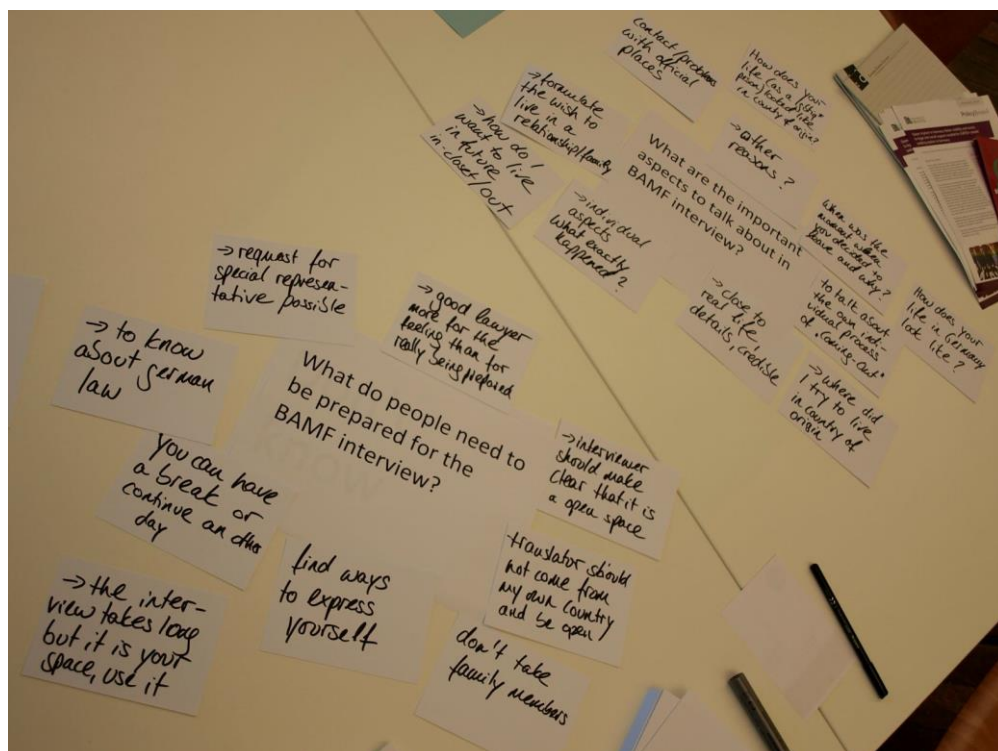 contact/problems
with official
places
How does your
life (as a
person) looked like
in country of origin?
→ formulate
the wish to
live in a
relationship/family
→ how do I
want to live
in future
in-closet/out
What are the important
aspects to talk about in
BAMF interview?
→ other
reasons?
→ individual
aspects
what exactly
happened?
When was the
moment when
you decided to
leave and why?
→ close to
real life,
details, credible
to talk about
the own indi-
vidual process
of "Coming-Out"
How does your
life in Germany
look like?
→ where did
I try to live
in country of
origin
→ request for
special represen-
tative possible
→ good lawyer
more for the
feeling than for
really being prepared
→ to know
about german
law
What do people need to
be prepared for the
BAMF interview?
you can have
a break or
continue an other
day
→ interviewer
should make
clear that it is
a open space
→ the inter-
view takes long
but it is your
space, use it
find ways
to express
yourself
translator should
not come from
my own country
and be open
don't take
family members